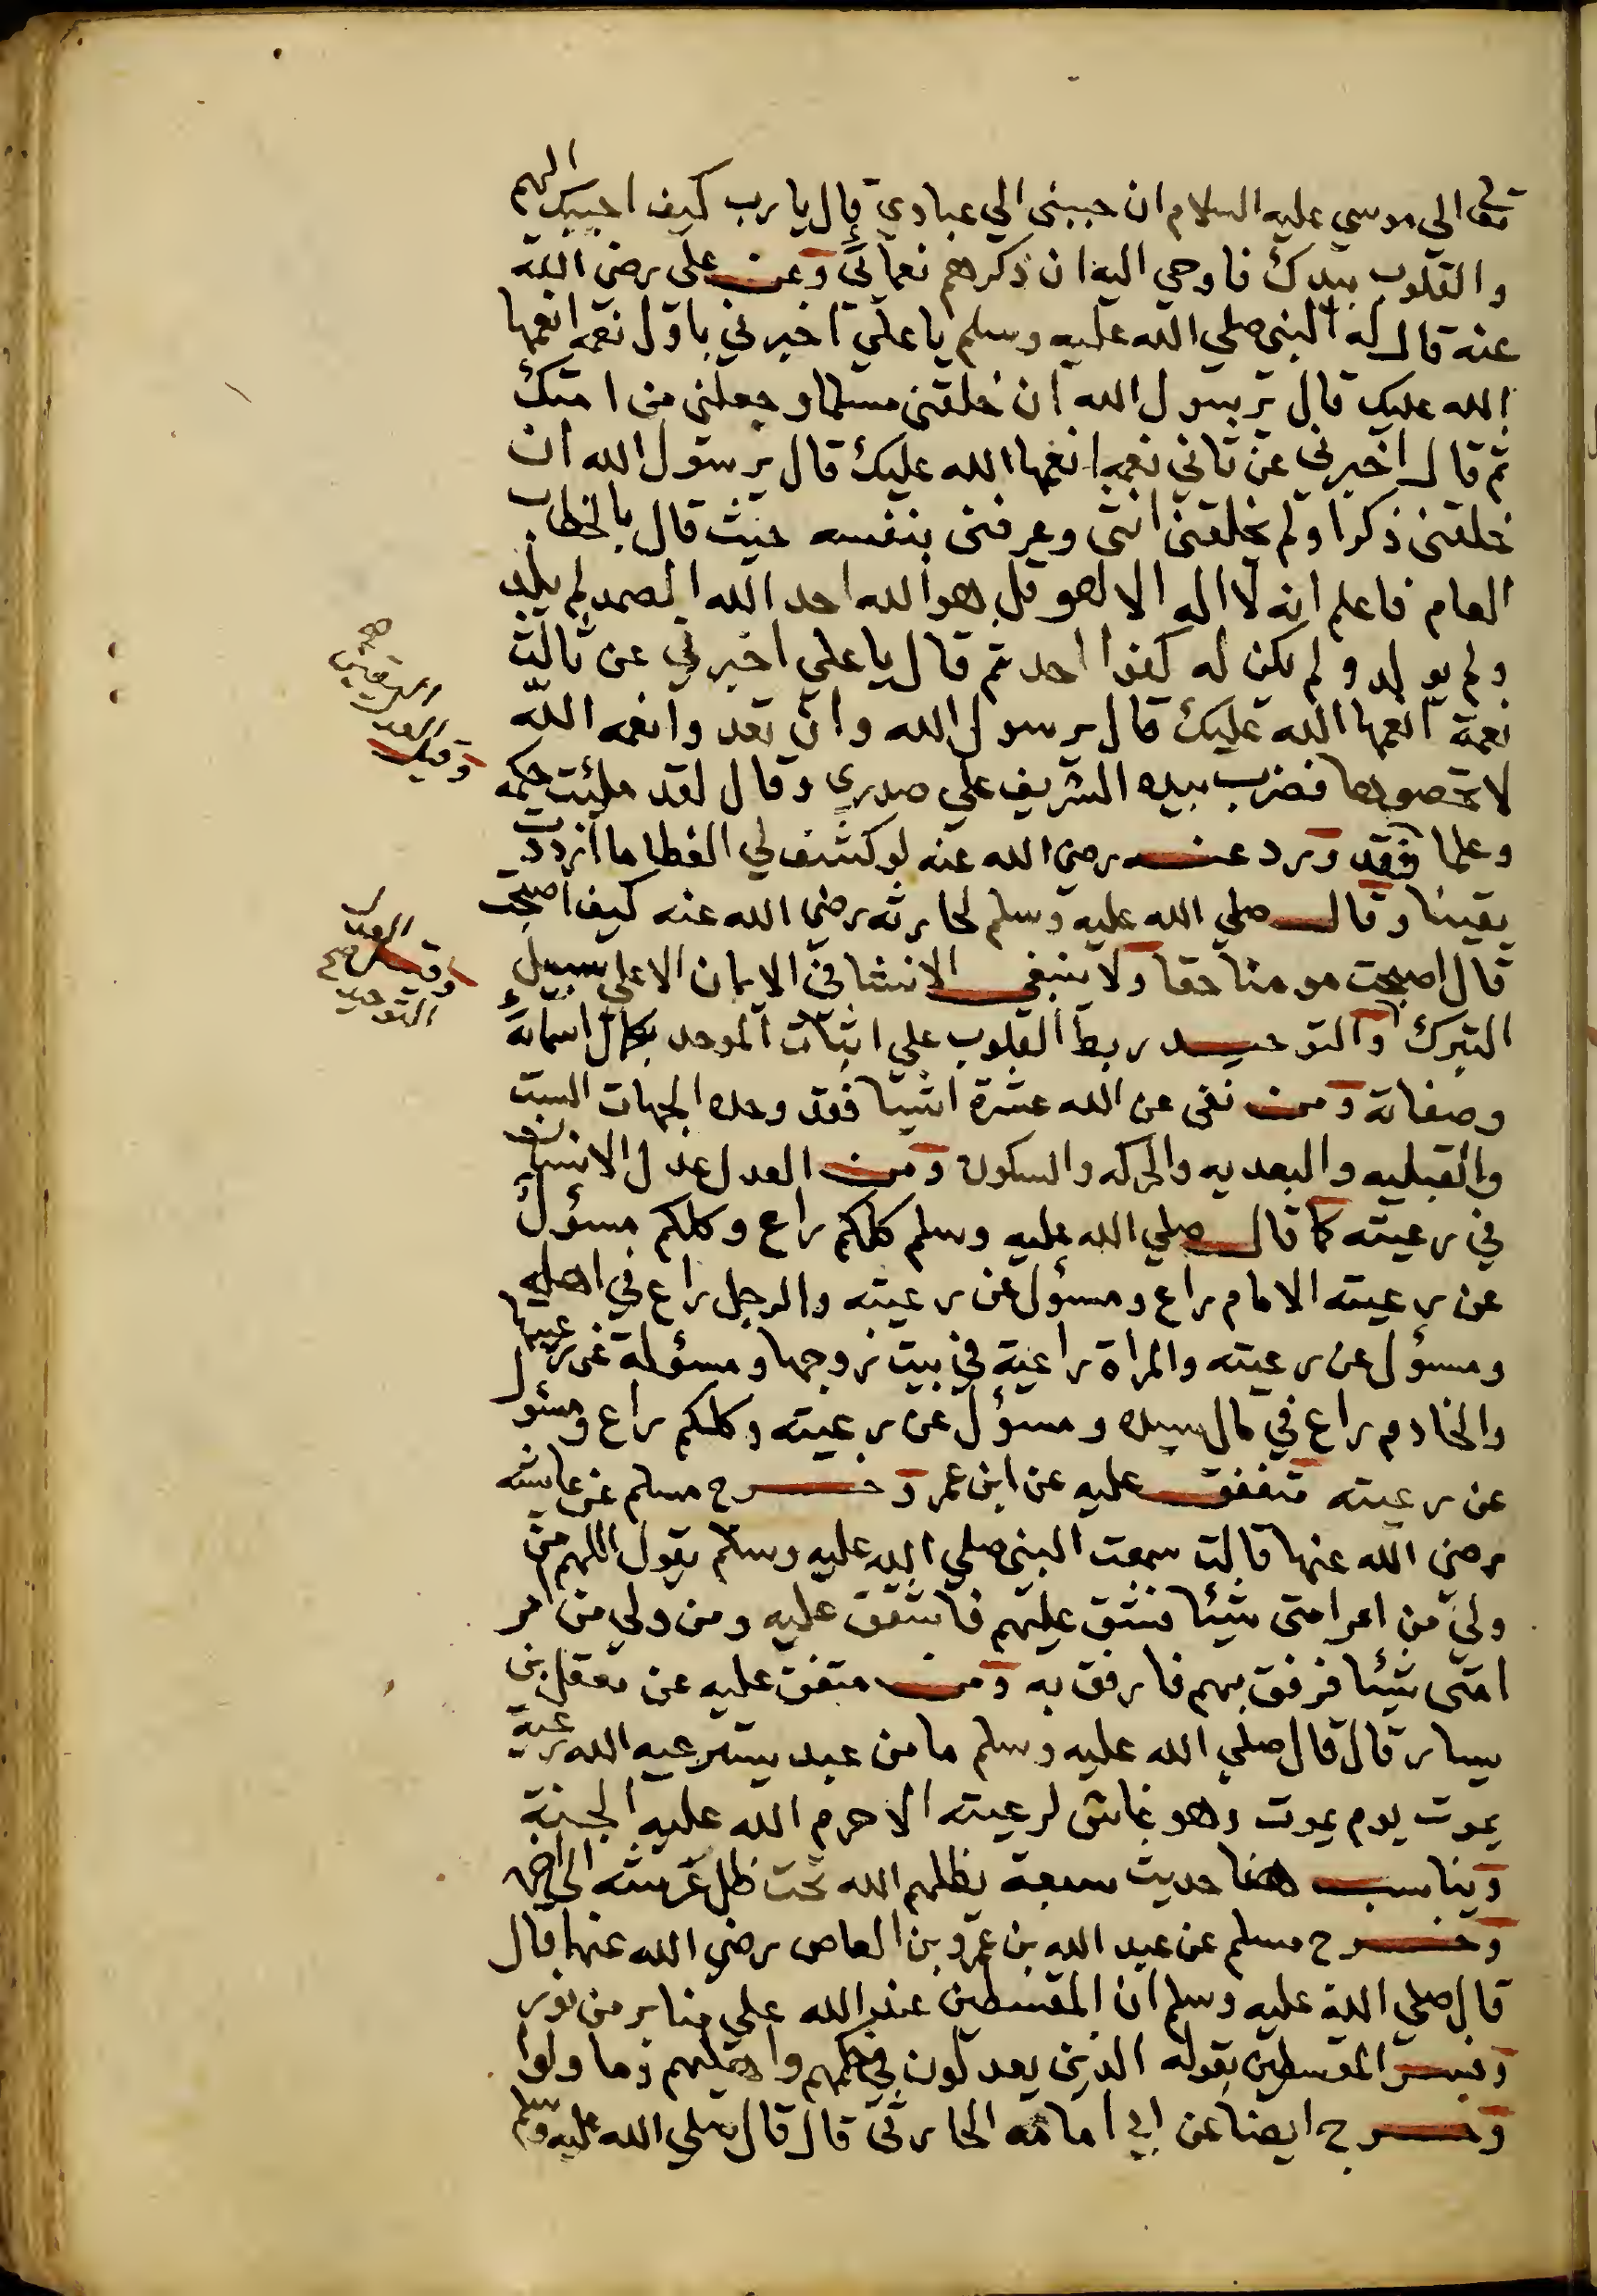 تعالى الي موسي عليه السلام ان حببني الي عبادي قال يا رب كيف احببك اليهم
والقلوب بيدك فاوحي اليه ان ذكرهم نعمائي وعن على رضى الله
عنه قال له النبي صلي الله عليه وسلم يا علي اخبرني باول نعمه انعمها
الله عليك قال يرسول الله ان خلقني مسلما وجعلني من امتك
ثم قال اخبرني عن ثاني نعمه انعمها الله عليك قال يرسول الله ان
خلقني ذكرا ولم يخلقني انثى وعرفني بنفسه حيث قال بالخطاب
العام فاعلم انه لا اله الا هو قل هو الله احد الله الصمد لم يلد
ولم يولد ولم يكن له كفوا احد ثم قال يا علي اخبرني عن ثالث
نعمة انعمها الله عليك قال يرسول الله وان تعدوا نعمه الله
لا تحصوها فضرب بيده الشريف علي صدري وقال لقد ملئت حكمه
وعلما فقد ورد عنه رضي الله عنه لو كشف لي الغطا ما ازددت
يقينا وقال صلي الله عليه وسلم لحارثه رضي الله عنه كيف اصبحت
قال اصبحت مومنا حقا ولا ينبغي الانشا في الايمان الا علي سبيل
التبرك والتوحيد ربط القلوب علي اثبات الموحد بكمال اسمائه
وصفاته ومن نفى عن الله عشرة اشيا فقد وحده الجهات الست
والقبليه والبعديه والحركه والسكون ومن العدل عدل الانسان
في رعيته كما قال صلي الله عليه وسلم كلكم راع وكلكم مسؤل
عن رعيته الامام راع ومسؤل عن رعيته والرجل راع في اهله
ومسؤل عن رعيته والمراة راعية في بيت زوجها ومسؤلة عن رعيتها
والخادم راع في مال سيده ومسؤل عن رعيته وكلكم راع ومسؤل
عن رعيته متفق عليه عن ابن عمر وخرج مسلم عن عايشه
رضي الله عنها قالت سمعت النبي صلي الله عليه وسلم يقول اللهم من
ولي من امر امتي شيئا فشق عليهم فاشقق عليه ومن ولي من امر
امتى شيئا فرفق بهم فارفق به ومن متفق عليه عن معقل بن
يسار قال قال صلي الله عليه وسلم ما من عبد يسترعيه الله رعية
يموت يوم يموت وهو غاش لرعيته الا حرم الله عليه الجنة
ويناسب هنا حديث سبعة يظلهم الله تحت ظل عرشه الي اخره
وخرج مسلم عن عبد الله بن عمرو بن العاص رضي الله عنها قال
قال صلي الله عليه وسلم ان المقسطين عند الله علي منابر من نور
وفسر المقسطين بقوله الذين يعدلون في حكمهم واهليهم وما ولوا
وخرج ايضا عن ابي امامه الحارثي قال قال صلي الله عليه وسلم
وقيل
العدل
وقيل
العدل
التوحيد